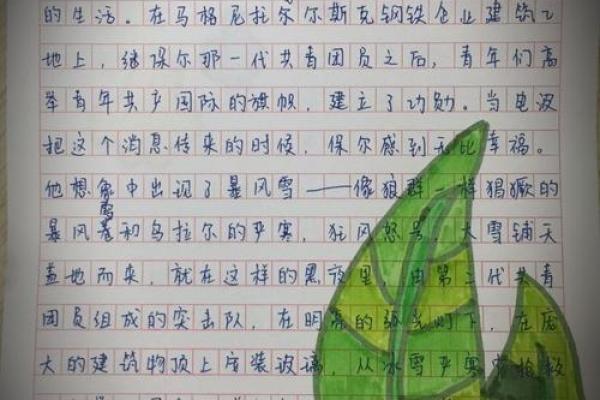 的生活。在马格尼托尔尔斯克钢铁企业建筑工
地上，继保尔那一代共青团员之后，青年们高
举青年共产国际的旗帜，建立了功勋。当电波
把这个消息传来的时候，保尔感到无比幸福。
他想象中出现了暴风雪——像狼群一样猖獗的
暴风雪和乌拉尔的严寒，狂风怒号，大雪铺天
盖地而来，就在这样的黑夜里，由第二代共青
团员组成的突击队，在明亮的弧光灯下，在庞
大的建筑物顶上安装玻璃，从冰雪严寒中抢救